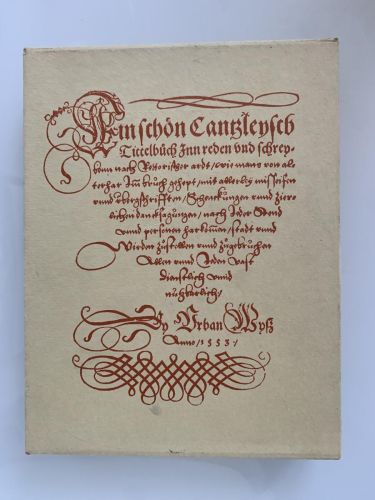 Ein schön Cantzleysch
Tittelbüch Inn reden vnd schrey-
benn nach Rettorischer ardt / wie mans von al-
terhar Im bruch gehept / mit allerley missifen
vnnd übergschrifften / Schenckungen vnnd zier-
lichen dancksagungen / nach Jeder Stend
vnnd personen harkomen / stadt vnnd
Wirden zůstellen vnnd zůgebruchen
Allen vnnd Jeden vast
dienstlich vnnd
nutzbarlich /
By Vrban Wyß
Anno / 1553 /